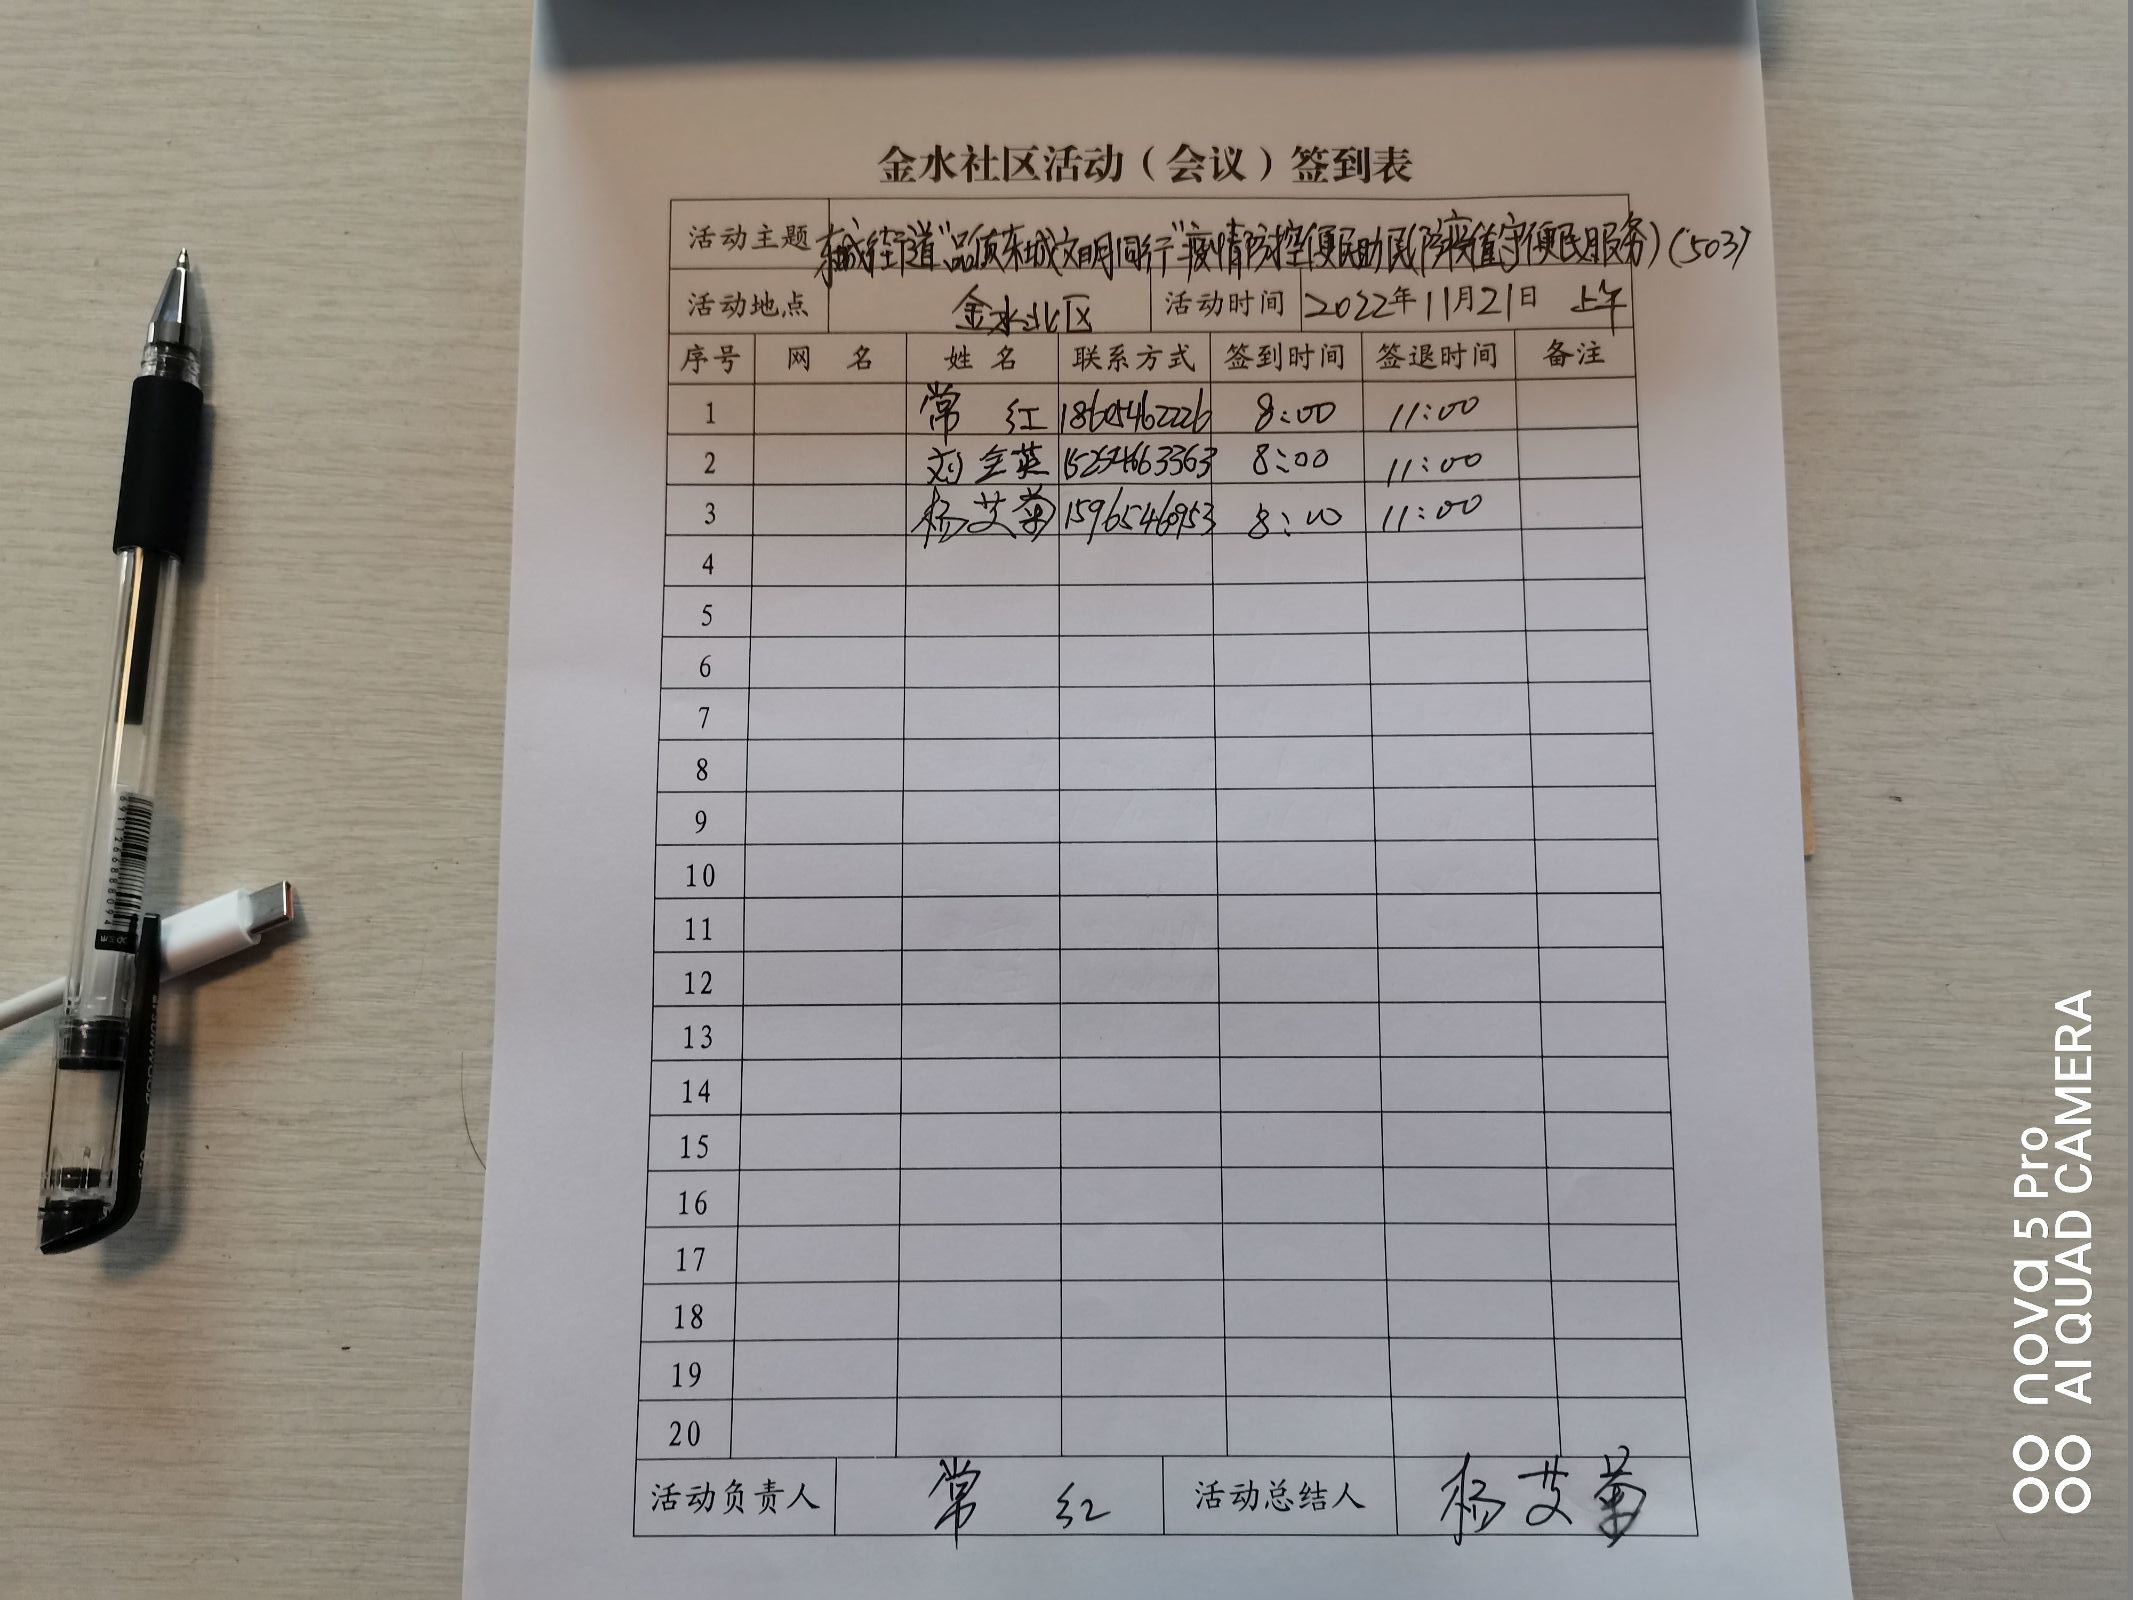 金水社区活动（会议）签到表
活动主题 东城街道“品质东城文明同行”疫情防控便民助民(防疫值守便民服务)(503)
活动地点 金水北区 活动时间 2022年11月21日 上午
序号 网 名 姓 名 联系方式 签到时间 签退时间 备注
1 常 红 18605462226 8:00 11:00
2 刘全英 15254663363 8:00 11:00
3 杨艾菊 8:00 11:00
4
5
6
7
8
9
10
11
12
13
14
15
16
17
18
19
20
活动负责人 常 红 活动总结人 杨艾菊
nova 5 Pro
AI QUAD CAMERA